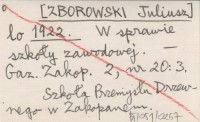 [ZBOROWSKI Juliusz]
lo 1922. – W sprawie
szkoły zawodowej. –
Gaz. Zakop. 2, nr 20: 3.
Szkoła Przemysłu Drzew-
nego w Zakopanem.